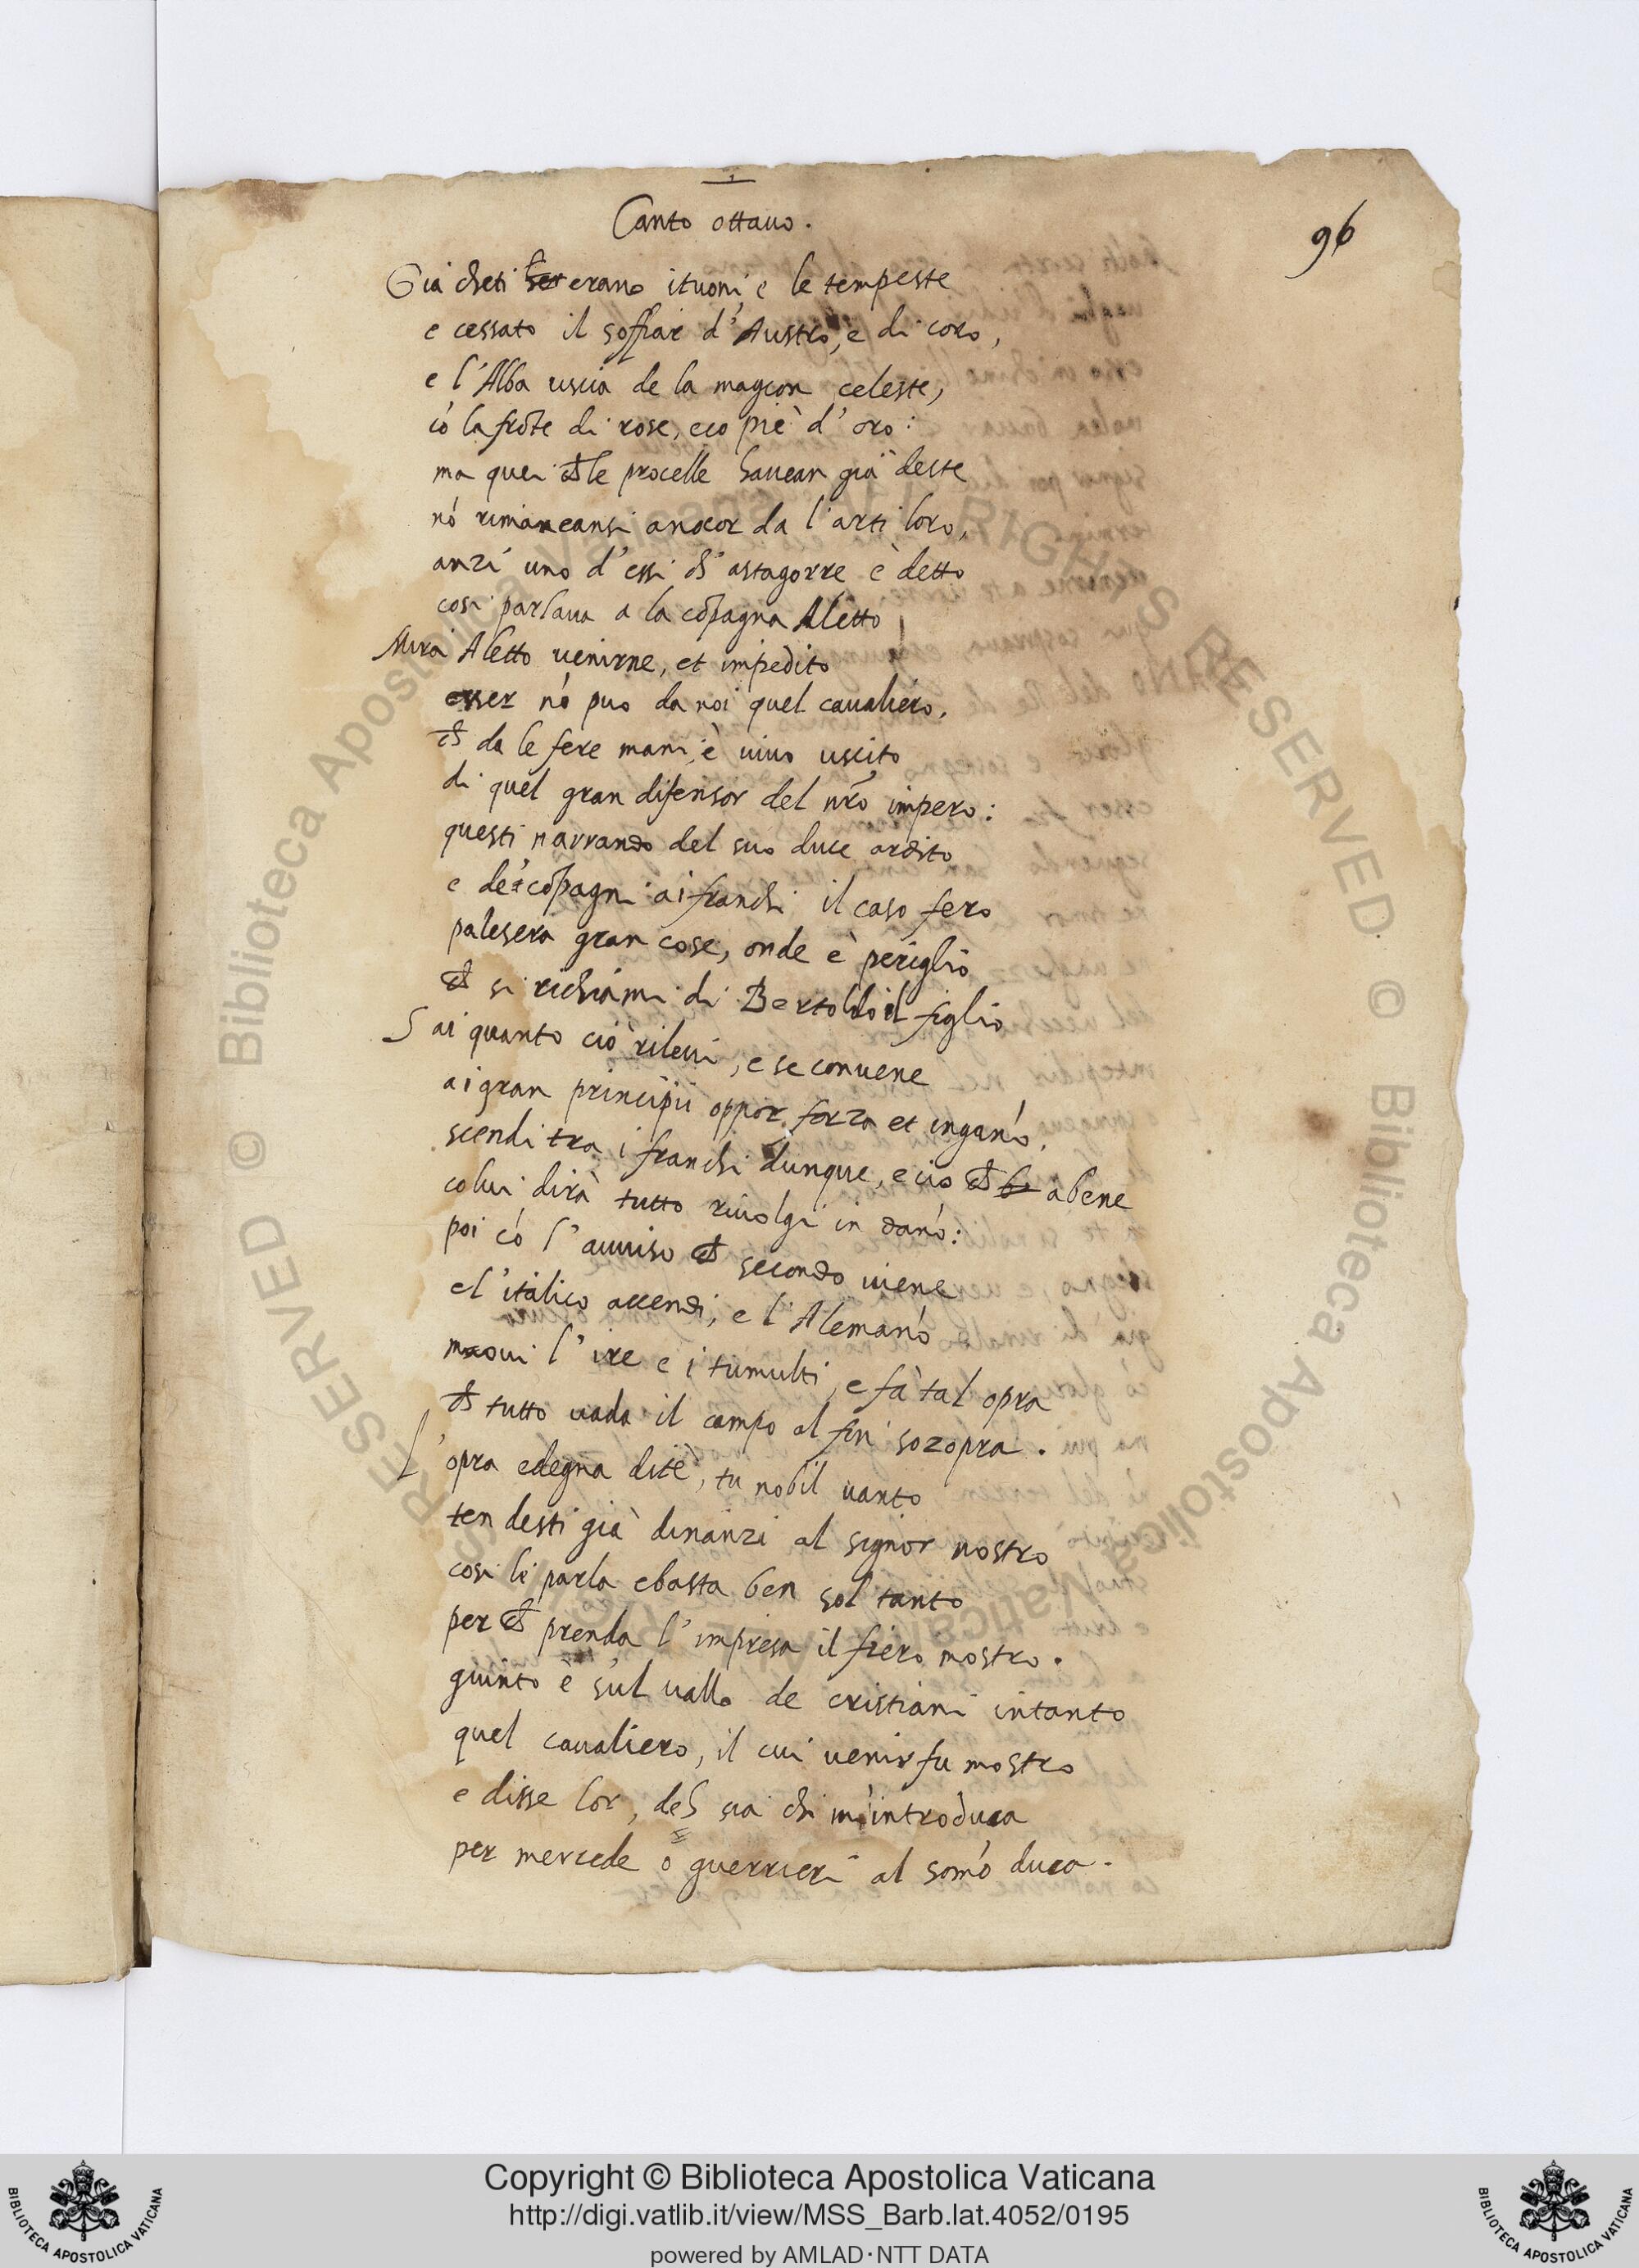 Canto ottauo.
96
Già cheti erano i tuoni, e le tempeste
e cessato il soffiar d'Austro, e di coro,
e l'Alba uscia de la magion celeste,
cō la frōte di rose, e co piè d'oro:
ma quei che le procelle hauean già deste
nō rimaneansi ancor da l'arti loro,
anzi uno d'essi ch'astagorre è detto
cosi parlaua a la cōpagna Aletto
Mira Aletto uenirne, et impedito
esser nō puo da noi quel caualiero.
che da le fere mani è uiuo uscito
di quel gran difensor del nr̄o impero:
questi narrando del suo duce ardito
e de' cōpagni ai franchi il caso fero
paleserà gran cose, onde è periglio
che si richiami di Bertoldo il figlio
Sai quanto ciò rileui, e se conuene
ai gran principii oppor forza et ingan̄o.
scendi tra i franchi dunque, e cio che abene
colui dirà tutto riuolgi in dan̄o:
poi cō l'auuiso che secondo uiene
el'italico accendi, e l'Aleman̄o
moui l'ire e i tumulti, e fà tal opra
che tutto uada il campo al fin sozopra.
L'opra e degna di te, tu nobil uanto
ten desti già dinanzi al signor nostro
cosi li parla e basta ben sol tanto
per che prenda l'impresa il fiero mostro.
giunto è s'ul uallo de cristiani intanto
quel caualiero, il cui uenir fu mostro
e disse lor, deh sia chi m'introduca
per mercede o guerrieri al som̄o duca.
Copyright © Biblioteca Apostolica Vaticana
http://digi.vatlib.it/view/MSS_Barb.lat.4052/0195
powered by AMLAD·NTT DATA
BIBLIOTECA APOSTOLICA VATICANA
BIBLIOTECA APOSTOLICA VATICANA